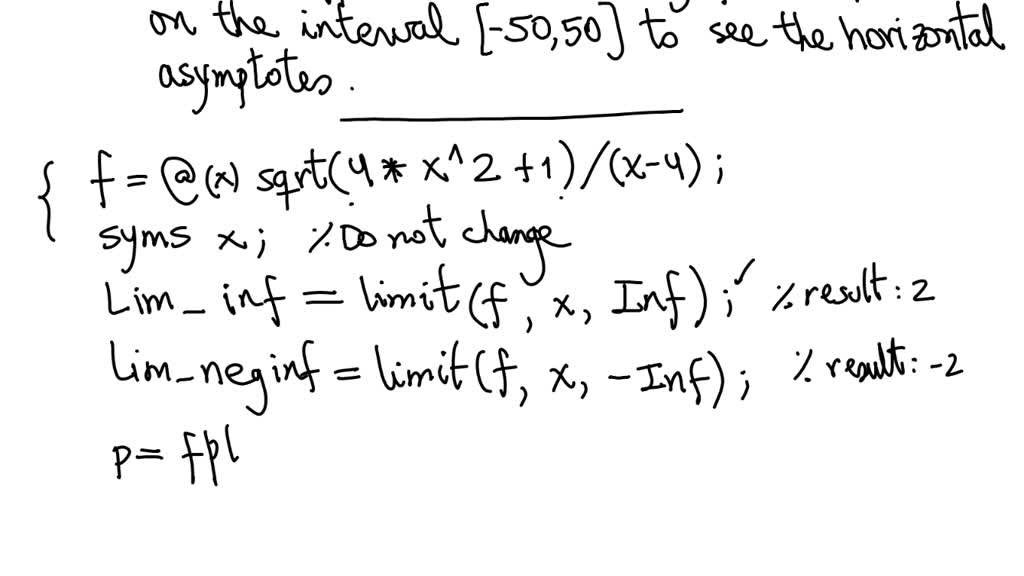 on the interval [-50,50] to see the horizontal
asymptotes.
f = @(x) sqrt(4 * x^2 +1)/(x-4);
syms x; % Do not change
Lim_inf = limit(f, x, Inf); ✓ % result: 2
Lim_neginf = limit(f, x, -Inf); % result: -2
p = fpl